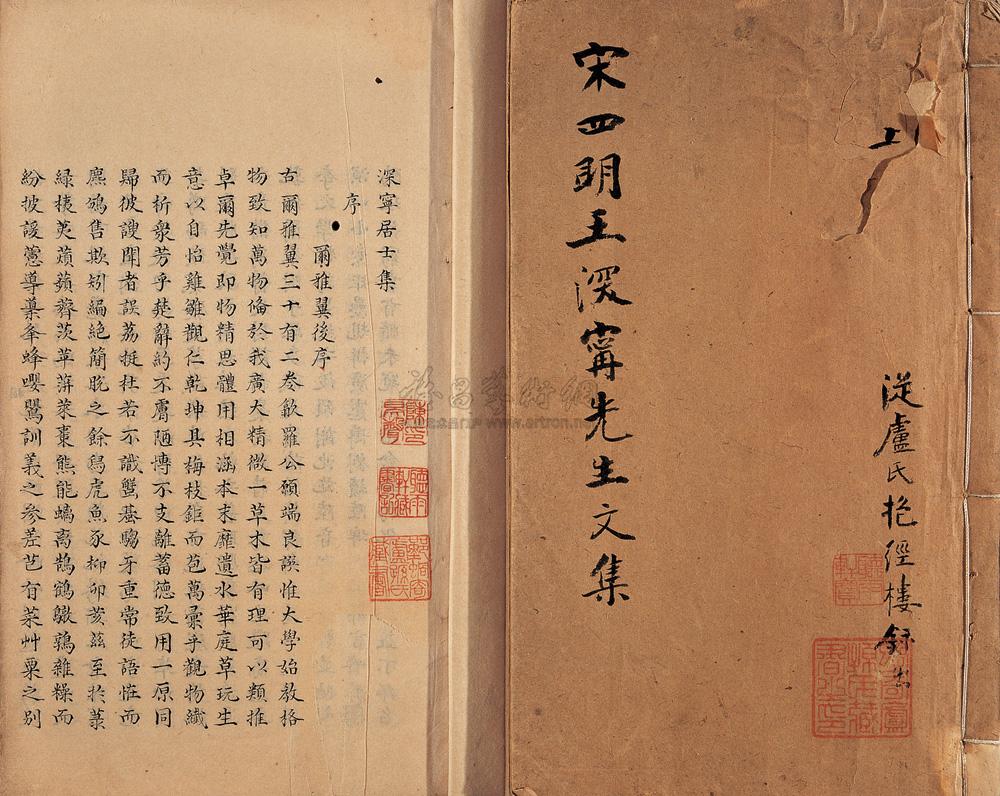 上
從盧氏抱經樓錄出
宋四明王深寧先生文集
深寧居士集
序 爾雅翼後序
右爾雅翼三十有二卷歙羅公願端良譔惟大學始敎格
物致知萬物備於我廣大精微一草木皆有理可以類推
卓爾先覺即物精思體用相涵本末靡遺水華庭草玩生
意以自怡雞雛觀仁乾坤具梅枝鉅而苞萬彙乎觀物纖
而析衆芳乎楚辭約不膚陋博不支離蓄德致用一原同
歸彼謏聞者誤荔挺杜若不識蟹蟚騶牙重常徒語怪而
麃鴆售欺矧編絶簡脫之餘舄虎魚豕抑卯亥茲至於菉
緑桋荑薠蘋薺茨苹蓱萊棗熊能螭离鵠鶴鷻鶉雜糅而
紛披諼藼導䆃夆蜂嚶鸎訓義之參差芑有菜艸粟之别
www.artron.net